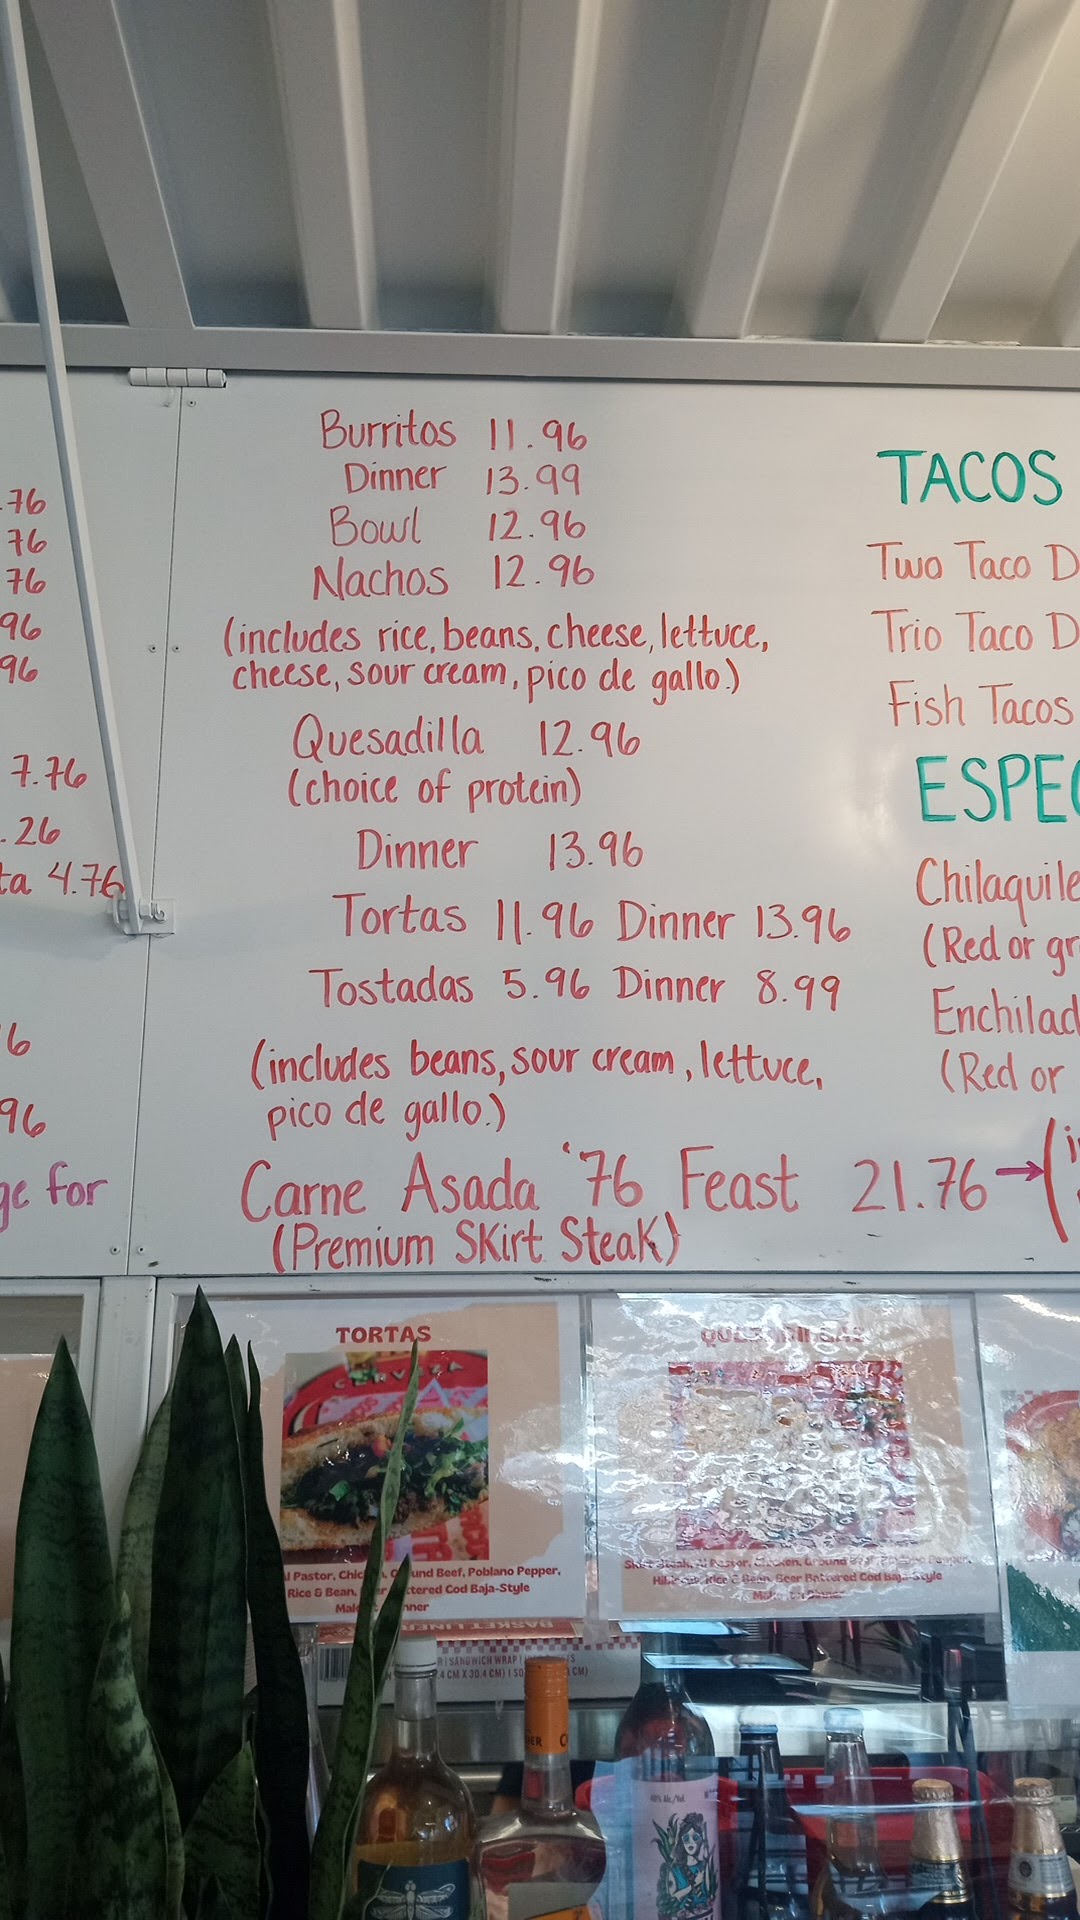 .76
76
76
96
96
7.76
.26
ta 4.76
6
96
ge for
Burritos 11.96
Dinner 13.99
Bowl 12.96
Nachos 12.96
(includes rice, beans, cheese, lettuce,
cheese, sour cream, pico de gallo.)
Quesadilla 12.96
(choice of protein)
Dinner 13.96
Tortas 11.96 Dinner 13.96
Tostadas 5.96 Dinner 8.99
(includes beans, sour cream, lettuce,
pico de gallo.)
Carne Asada '76 Feast 21.76 → (i
(Premium Skirt Steak)
TACOS
Two Taco D
Trio Taco D
Fish Tacos
ESPEC
Chilaquile
(Red or gr
Enchilad
(Red or
TORTAS
CERVEZA
l Pastor, Chicken, Ground Beef, Poblano Pepper,
Rice & Bean, Beer Battered Cod Baja-Style
QUESADILLAS
Skirt Steak, Al Pastor, Chicken, Ground Beef, Poblano Pepper,
Hibiscus, Rice & Bean, Beer Battered Cod Baja-Style
BASKET LINER
SANDWICH WRAP
CM X 30.4 CM)
40% Alc./Vol.